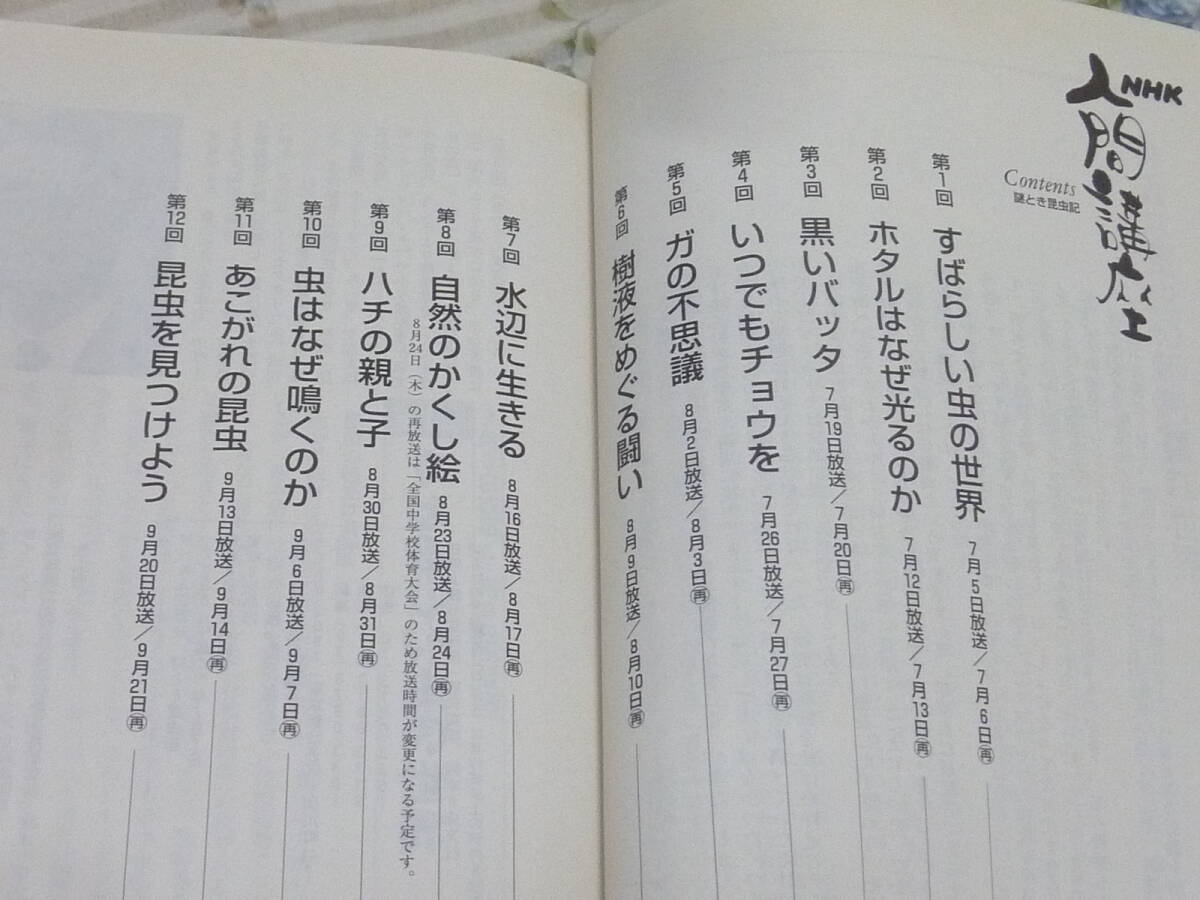 NHK
人間講座
Contents
謎とき昆虫記
第1回 すばらしい虫の世界 7月5日放送/7月6日㊢
第2回 ホタルはなぜ光るのか 7月12日放送/7月13日(再)
第3回 黒いバッタ 7月19日放送/7月20日(再)
第4回 いつでもチョウを 7月26日放送/7月27日(再)
第5回 ガの不思議 8月2日放送/8月3日(再)
第6回 樹液をめぐる闘い 8月9日放送/8月10日(再)
第7回 水辺に生きる 8月16日放送/8月17日(再)
第8回 自然のかくし絵 8月23日放送/8月24日(再)
8月24日(木)の再放送は「全国中学校体育大会」のため放送時間が変更になる予定です。
第9回 ハチの親と子 8月30日放送/8月31日(再)
第10回 虫はなぜ鳴くのか 9月6日放送/9月7日(再)
第11回 あこがれの昆虫 9月13日放送/9月14日(再)
第12回 昆虫を見つけよう 9月20日放送/9月21日(再)